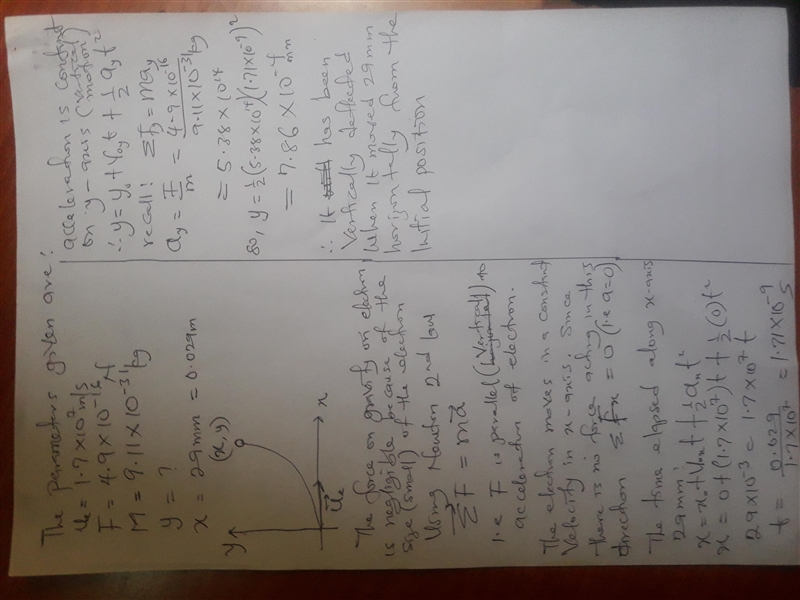 The parameters given are:
Ve = 1.7×10⁷ m/s
F = 4.9×10⁻¹⁶ N
M = 9.11×10⁻³¹ kg
y = ?
x = 29mm = 0.029m
y
(x,y)
Ve
x
The force on gravity on electron
is negligible because of the
size (small) of the electron
Using Newton 2nd law
ΣF = ma
i.e F is parallel (Vertical) to
acceleration of electron.
The electron moves in a constant
Velocity in x-axis. Since
there is no force acting in this
direction ΣFx = 0 (i.e a=0)
The time elapsed along x-axis
29mm:
x = x₀ + V₀ₓt + ½aₓt²
x = 0 + (1.7×10⁷)t + ½(0)t²
29×10⁻³ = 1.7×10⁷ t
t = 0.029 / 1.7×10⁷ = 1.71×10⁻⁹ s
acceleration is constant
on y-axis (vertical
motion)
∴ y = y₀ + V₀yt + ½ayt²
recall: ΣFy = may
ay = F/m = 4.9×10⁻¹⁶ / 9.11×10⁻³¹ kg
= 5.38×10¹⁴
so, y = ½(5.38×10¹⁴)(1.71×10⁻⁹)²
= 7.86×10⁻⁴ mm
∴ It has been
Vertically deflected
When it moved 29mm
horizontally from the
Initial position